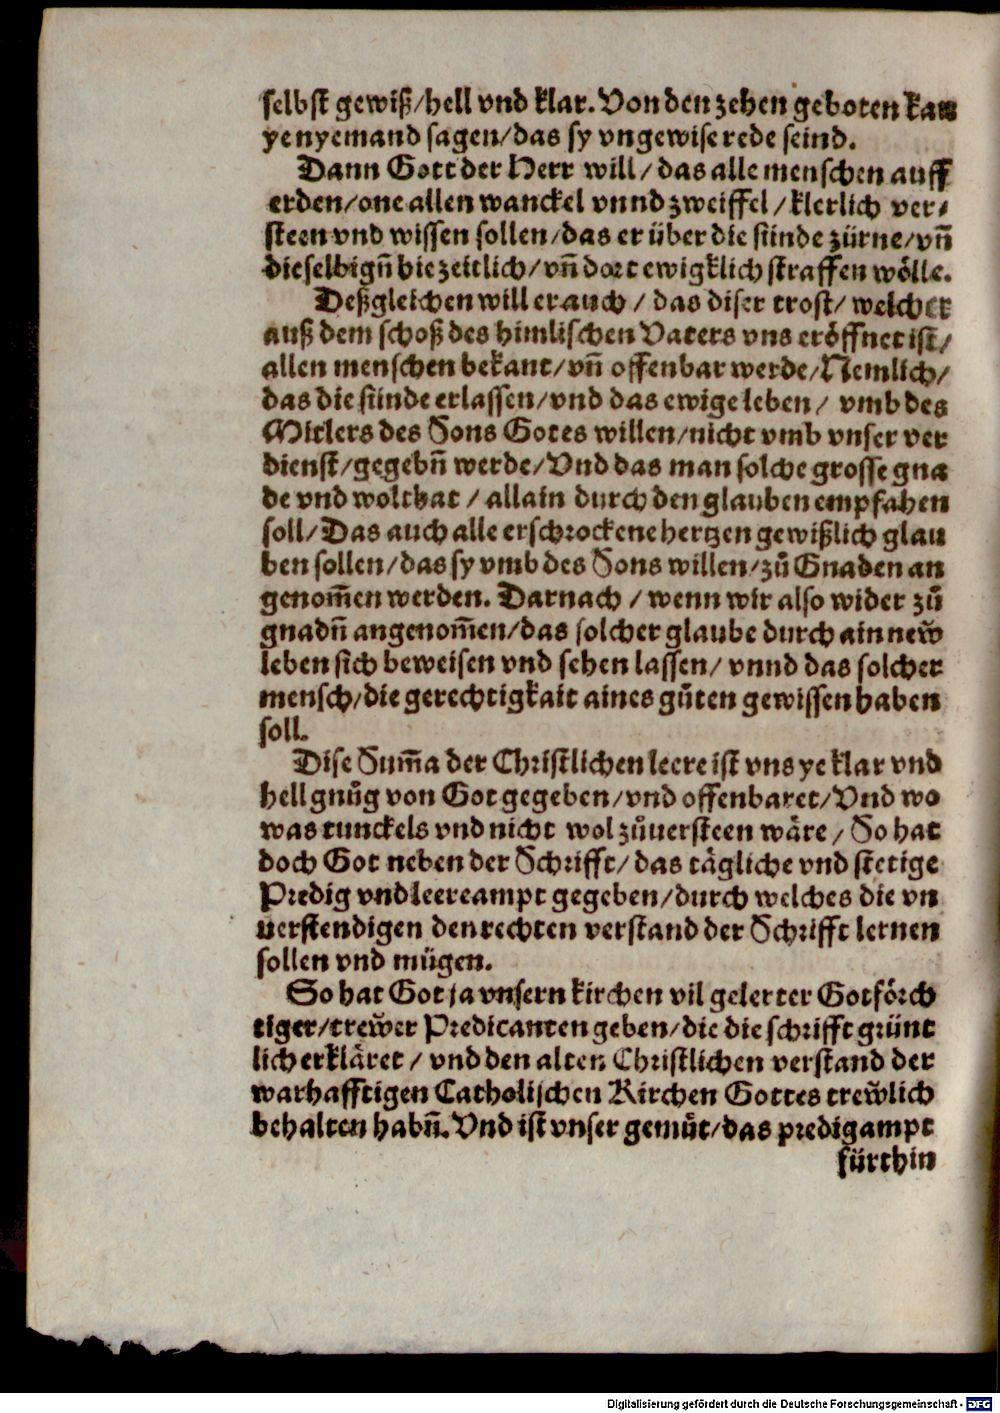 selbst gewiß/hell vnd klar. Von den zehen geboten kan
ye nyemand sagen/das sy vngewise rede seind.
Dann Gott der Herr will/das alle menschen auff
erden/one allen wanckel vnnd zweiffel/klerlich ver⸗
steen vnd wissen sollen/das er über die sünde zürne/vn̄
dieselbign̄ hie zeitlich/vn̄ dort ewigklich straffen wölle.
Deßgleichen will er auch/das diser trost/welcher
auß dem schoß des himlischen Vaters vns eröffnet ist/
allen menschen bekant/vn̄ offenbar werde/Nemlich/
das die sünde erlassen/vnd das ewige leben/vmb des
Mitlers des Sons Gotes willen/nicht vmb vnser ver
dienst/gegebn̄ werde/Vnd das man solche grosse gna
de vnd wolthat/allain durch den glauben empfahen
soll/Das auch alle erschrockene hertzen gewißlich glau
ben sollen/das sy vmb des Sons willen/zů Gnaden an
genom̄en werden. Darnach/wenn wir also wider zů
gnadn̄ angenom̄en/das solcher glaube durch ain new̆
leben sich beweisen vnd sehen lassen/vnnd das solcher
mensch/die gerechtigkait aines gůten gewissen haben
soll.
Dise Sum̄a der Christlichen leere ist vns ye klar vnd
hell gnůg von Got gegeben/vnd offenbaret/Vnd wo
was tunckels vnd nicht wol zůuersteen wäre/So hat
doch Got neben der Schrifft/das tägliche vnd stetige
Predig vnd leereampt gegeben/durch welches die vn
uerstendigen den rechten verstand der Schrifft lernen
sollen vnd mügen.
So hat Got ja vnsern kirchen vil gelerter Gotförch
tiger/trew̆er Predicanten geben/die die schrifft grünt
lich erkläret/vnd den alten Christlichen verstand der
warhafftigen Catholischen Kirchen Gottes trew̆lich
behalten habn̄. Vnd ist vnser gemůt/das predigampt
fürthin
Digitalisierung gefördert durch die Deutsche Forschungsgemeinschaft - DFG